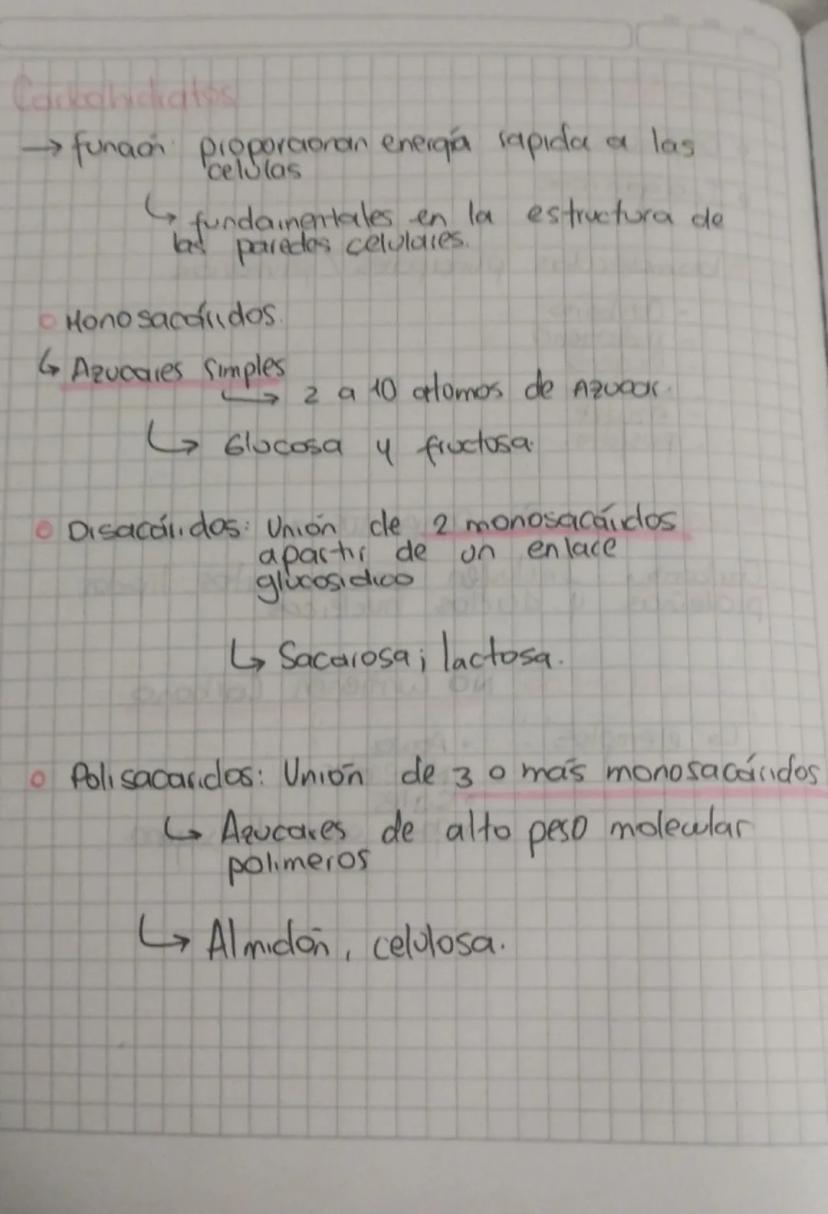 Carbohidratos
→ función: proporcionan energía rapida a las
celulas
↳ fundamentales en la estructura de
las paredes celulares.
○ Monosacáridos.
↳ Azucares simples
↳ 2 a 10 atomos de Azucar.
↳ Glucosa y fructosa.
○ Disacáridos: Unión de 2 monosacáridos
apartir de un enlace
glucosidico
↳ Sacarosa; lactosa.
○ Polisacaridos: Unión de 3 o más monosacáridos
↳ Azucares de alto peso molecular
polimeros
↳ Almidón, celulosa.